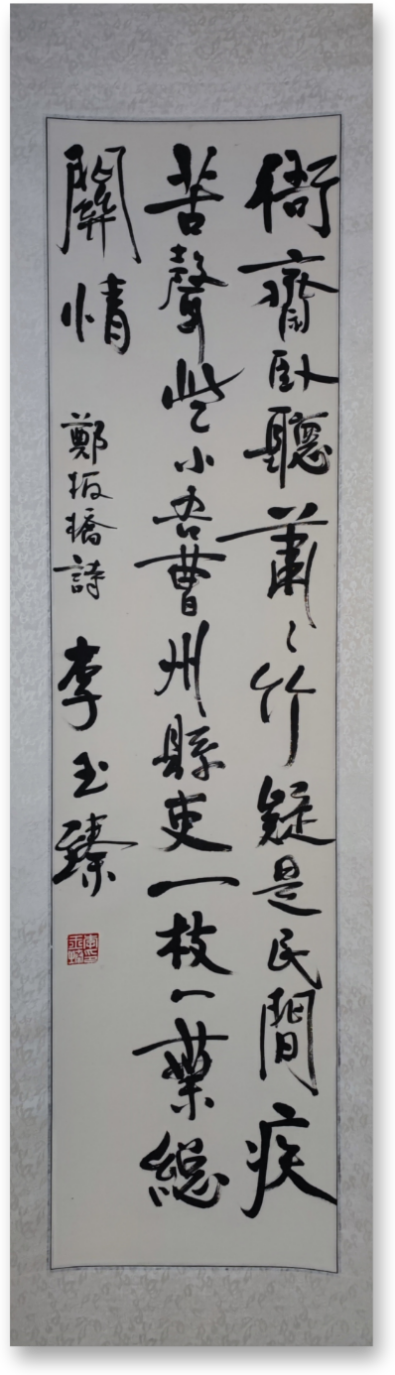 衙齋臥聽蕭〻竹疑是民間疾
苦聲些小吾曹州縣吏一枝一葉總
關情 鄭板橋詩 李玉臻